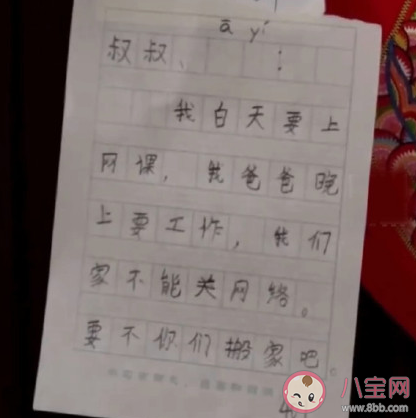 ā yí
叔叔、 ：
我白天要上
网课，我爸爸晚
上要工作，我们
家不能关网络。
要不你们搬家吧。
八宝网
www.8bb.com